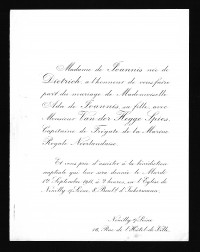 Madame de Joannis née de
Dietrich, a l'honneur de vous faire
part du mariage de Mademoiselle
Ada de Joannis sa fille, avec
Monsieur Van der Hegge Spies,
Capitaine de Frégate de la Marine
Royale Néerlandaise.
Et vous prie d'assister à la bénédiction
nuptiale qui leur sera donnée le Mardi
Septembre à 2 heures, en l'Eglise de
Neuilly s/Seine, 8 Boult d'Inkermann.
Neuilly s/Seine
Rue de l'Hôtel de Ville.